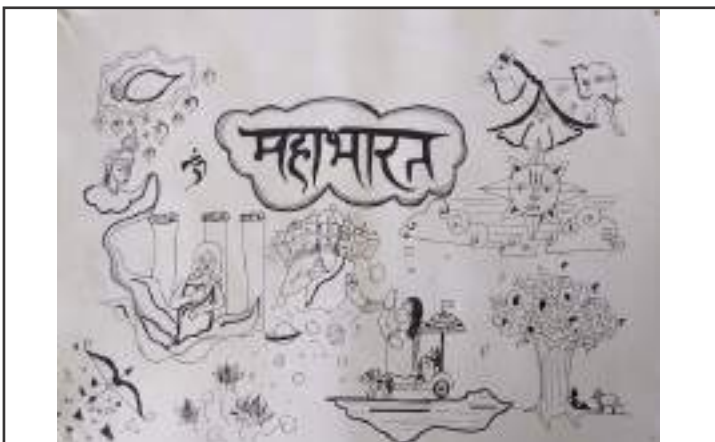 महाभारत
ॐ